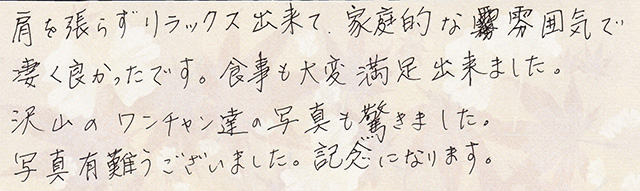 肩を張らずリラックス出来て、家庭的な雰囲気で
凄く良かったです。食事も大変満足出来ました。
沢山のワンチャン達の写真も驚きました。
写真有難うございました。記念になります。